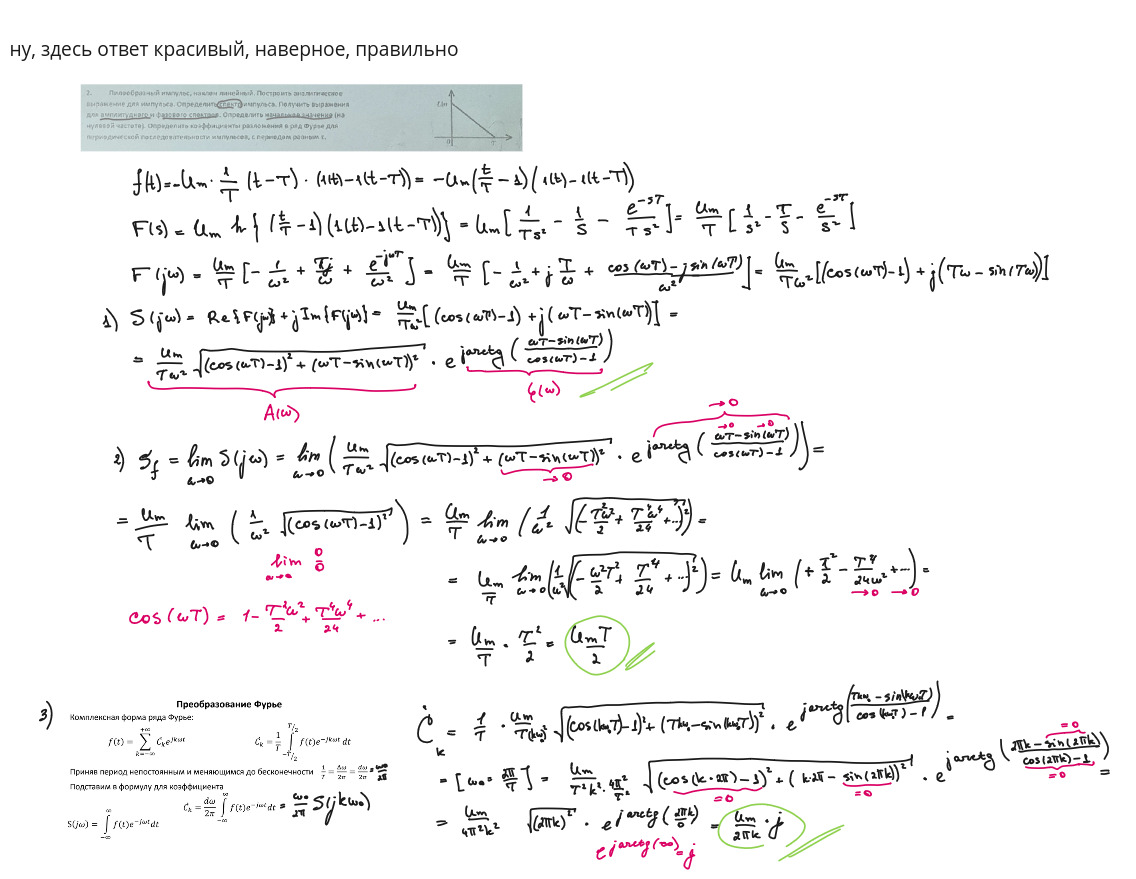 ну, здесь ответ красивый, наверное, правильно
2. Пилообразный импульс, наклон линейный. Построить аналитическое
выражение для импульса. Определить спектр импульса. Получить выражения
для амплитудного и фазового спектров. Определить начальное значение (на
нулевой частоте). Определить коэффициенты разложения в ряд Фурье для
периодической последовательности импульсов, с периодом равным T.
Um
0 T
f(t)=-Um·1/T (t-T)·(1(t)-1(t-T)) = -Um(t/T - 1)(1(t)-1(t-T))
F(s) = Um L{(t/T - 1)(1(t)-1(t-T))} = Um[1/(Ts²) - 1/s - e^(-sT)/(Ts²)] = Um/T [1/s² - T/s - e^(-sT)/s²]
F(jω) = Um/T [-1/ω² + Tj/ω + e^(-jωT)/ω²] = Um/T [-1/ω² + j T/ω + (cos(ωT) - j sin(ωT))/ω²] = Um/(Tω²) [(cos(ωT)-1) + j(Tω - sin(Tω))]
1) S(jω) = Re{F(jω)} + j Im{F(jω)} = Um/(Tω²) [(cos(ωT)-1) + j(ωT - sin(ωT))] =
= Um/(Tω²) √((cos(ωT)-1)² + (ωT - sin(ωT))²) · e^(j arctg((ωT - sin(ωT))/(cos(ωT)-1)))
A(ω) φ(ω)
→0
→0 →0
2) Sf = lim ω→0 S(jω) = lim ω→0 (Um/(Tω²) √((cos(ωT)-1)² + (ωT - sin(ωT))²) · e^(j arctg((ωT - sin(ωT))/(cos(ωT)-1)))) =
→0
= Um/T lim ω→0 (1/ω² √((cos(ωT)-1)²)) = Um/T lim ω→0 (1/ω² √((-T²ω²/2 + T⁴ω⁴/24 + ...)²)) =
lim ω→0 0/0
= Um/T lim ω→0 (1/ω² √((-ω²T²/2 + T⁴/24 + ...)²)) = Um lim ω→0 (+T²/2 - T⁴/24ω² + ...) =
→0 →0
cos(ωT) = 1 - T²ω²/2 + T⁴ω⁴/24 + ...
= Um/T · T²/2 = UmT/2
3)
Преобразование Фурье
Комплексная форма ряда Фурье:
f(t) = ∑ k=-∞ +∞ Ċk e^(jkωt) Ċk = 1/T ∫ -T/2 T/2 f(t)e^(-jkωt) dt
Приняв период непостоянным и меняющимся до бесконечности 1/T = Δω/2π = dω/2π = ω₀/2π
Подставим в формулу для коэффициента
Ċk = dω/2π ∫ -∞ ∞ f(t)e^(-jωt) dt = ω₀/2π S(jkω₀)
S(jω) = ∫ -∞ ∞ f(t)e^(-jωt) dt
Ċk = 1/T · Um/(T(kω₀)²) √((cos(kω₀T)-1)² + (Tkω₀ - sin(kω₀T))²) · e^(j arctg((Tkω₀ - sin(kω₀T))/(cos(kω₀T)-1))) =
=0
= [ω₀ = 2π/T] = Um/(T²k²·4π²/T²) √((cos(k·2π)-1)² + (k·2π - sin(2πk))²) · e^(j arctg((2πk - sin(2πk))/(cos(2πk)-1))) =
=0 =0 =0
= Um/(4π²k²) √((2πk)²) · e^(j arctg(2πk/0)) = Um/2πk · j
e^(j arctg(∞)) = j